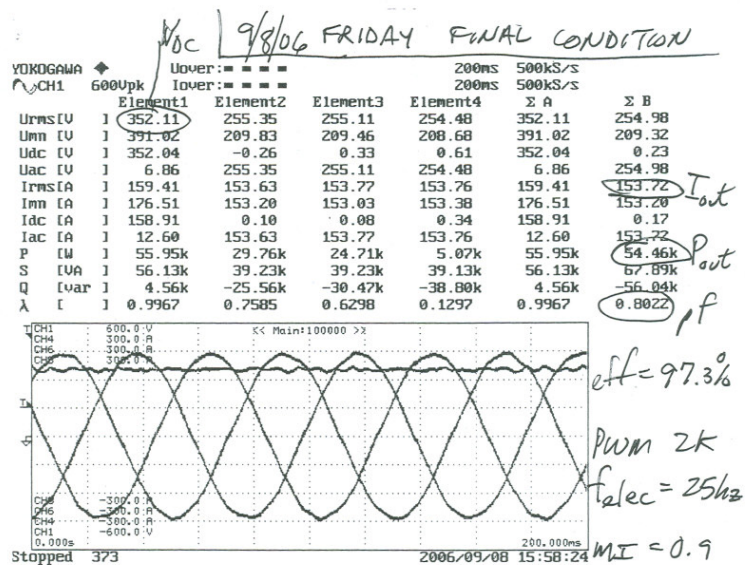 VDC 9/8/06 FRIDAY FINAL CONDITION
YOKOGAWA ◆ Uover:= = = = 200ms 500kS/s
CH1 600Vpk Iover:= = = = 200ms 500kS/s
Element1 Element2 Element3 Element4 Σ A Σ B
Urms[V ] 352.11 255.35 255.11 254.48 352.11 254.98
Umn [V ] 391.02 209.83 209.46 208.68 391.02 209.32
Udc [V ] 352.04 -0.26 0.33 0.61 352.04 0.23
Uac [V ] 6.86 255.35 255.11 254.48 6.86 254.98
Irms[A ] 159.41 153.63 153.77 153.76 159.41 153.72 Iout
Imn [A ] 176.51 153.20 153.03 153.38 176.51 153.20
Idc [A ] 158.91 0.10 0.08 0.34 158.91 0.17
Iac [A ] 12.60 153.63 153.77 153.76 12.60 153.72
P [W ] 55.95k 29.76k 24.71k 5.07k 55.95k 54.46k Pout
S [VA ] 56.13k 39.23k 39.23k 39.13k 56.13k 67.89k
Q [var ] 4.56k -25.56k -30.47k -38.80k 4.56k -56.04k
λ [ ] 0.9967 0.7585 0.6298 0.1297 0.9967 0.8022 pf
CH1 600.0 V << Main:100000 >>
CH4 300.0 A
CH6 300.0 A
300.0 A
eff = 97.3%
PWM 2K
felec = 25hz
-300.0 A
CH6 -300.0 A
CH4 -300.0 A
CH1 -600.0 V
0.000s 200.000ms
Stopped 373 2006/09/08 15:58:24
MI = 0.9